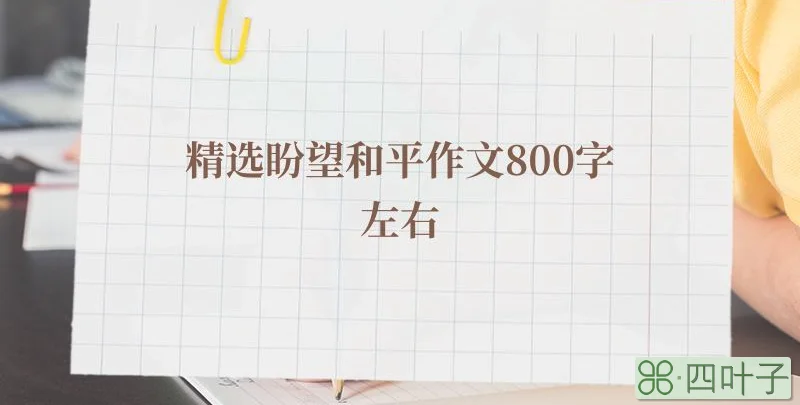 精选盼望和平作文800字
左右
⌘·四叶子